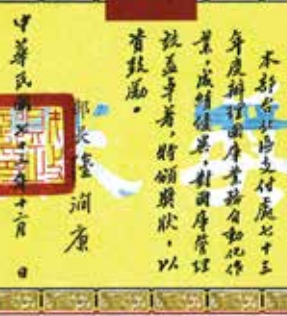 本部台北區支付處七十三
年度辦理國庫業務自動化作
業,成績優異,對國庫管理
效益卓著,特頒獎狀,以
資鼓勵。
部長金 淵 康
中華民國七十三年十二月 日